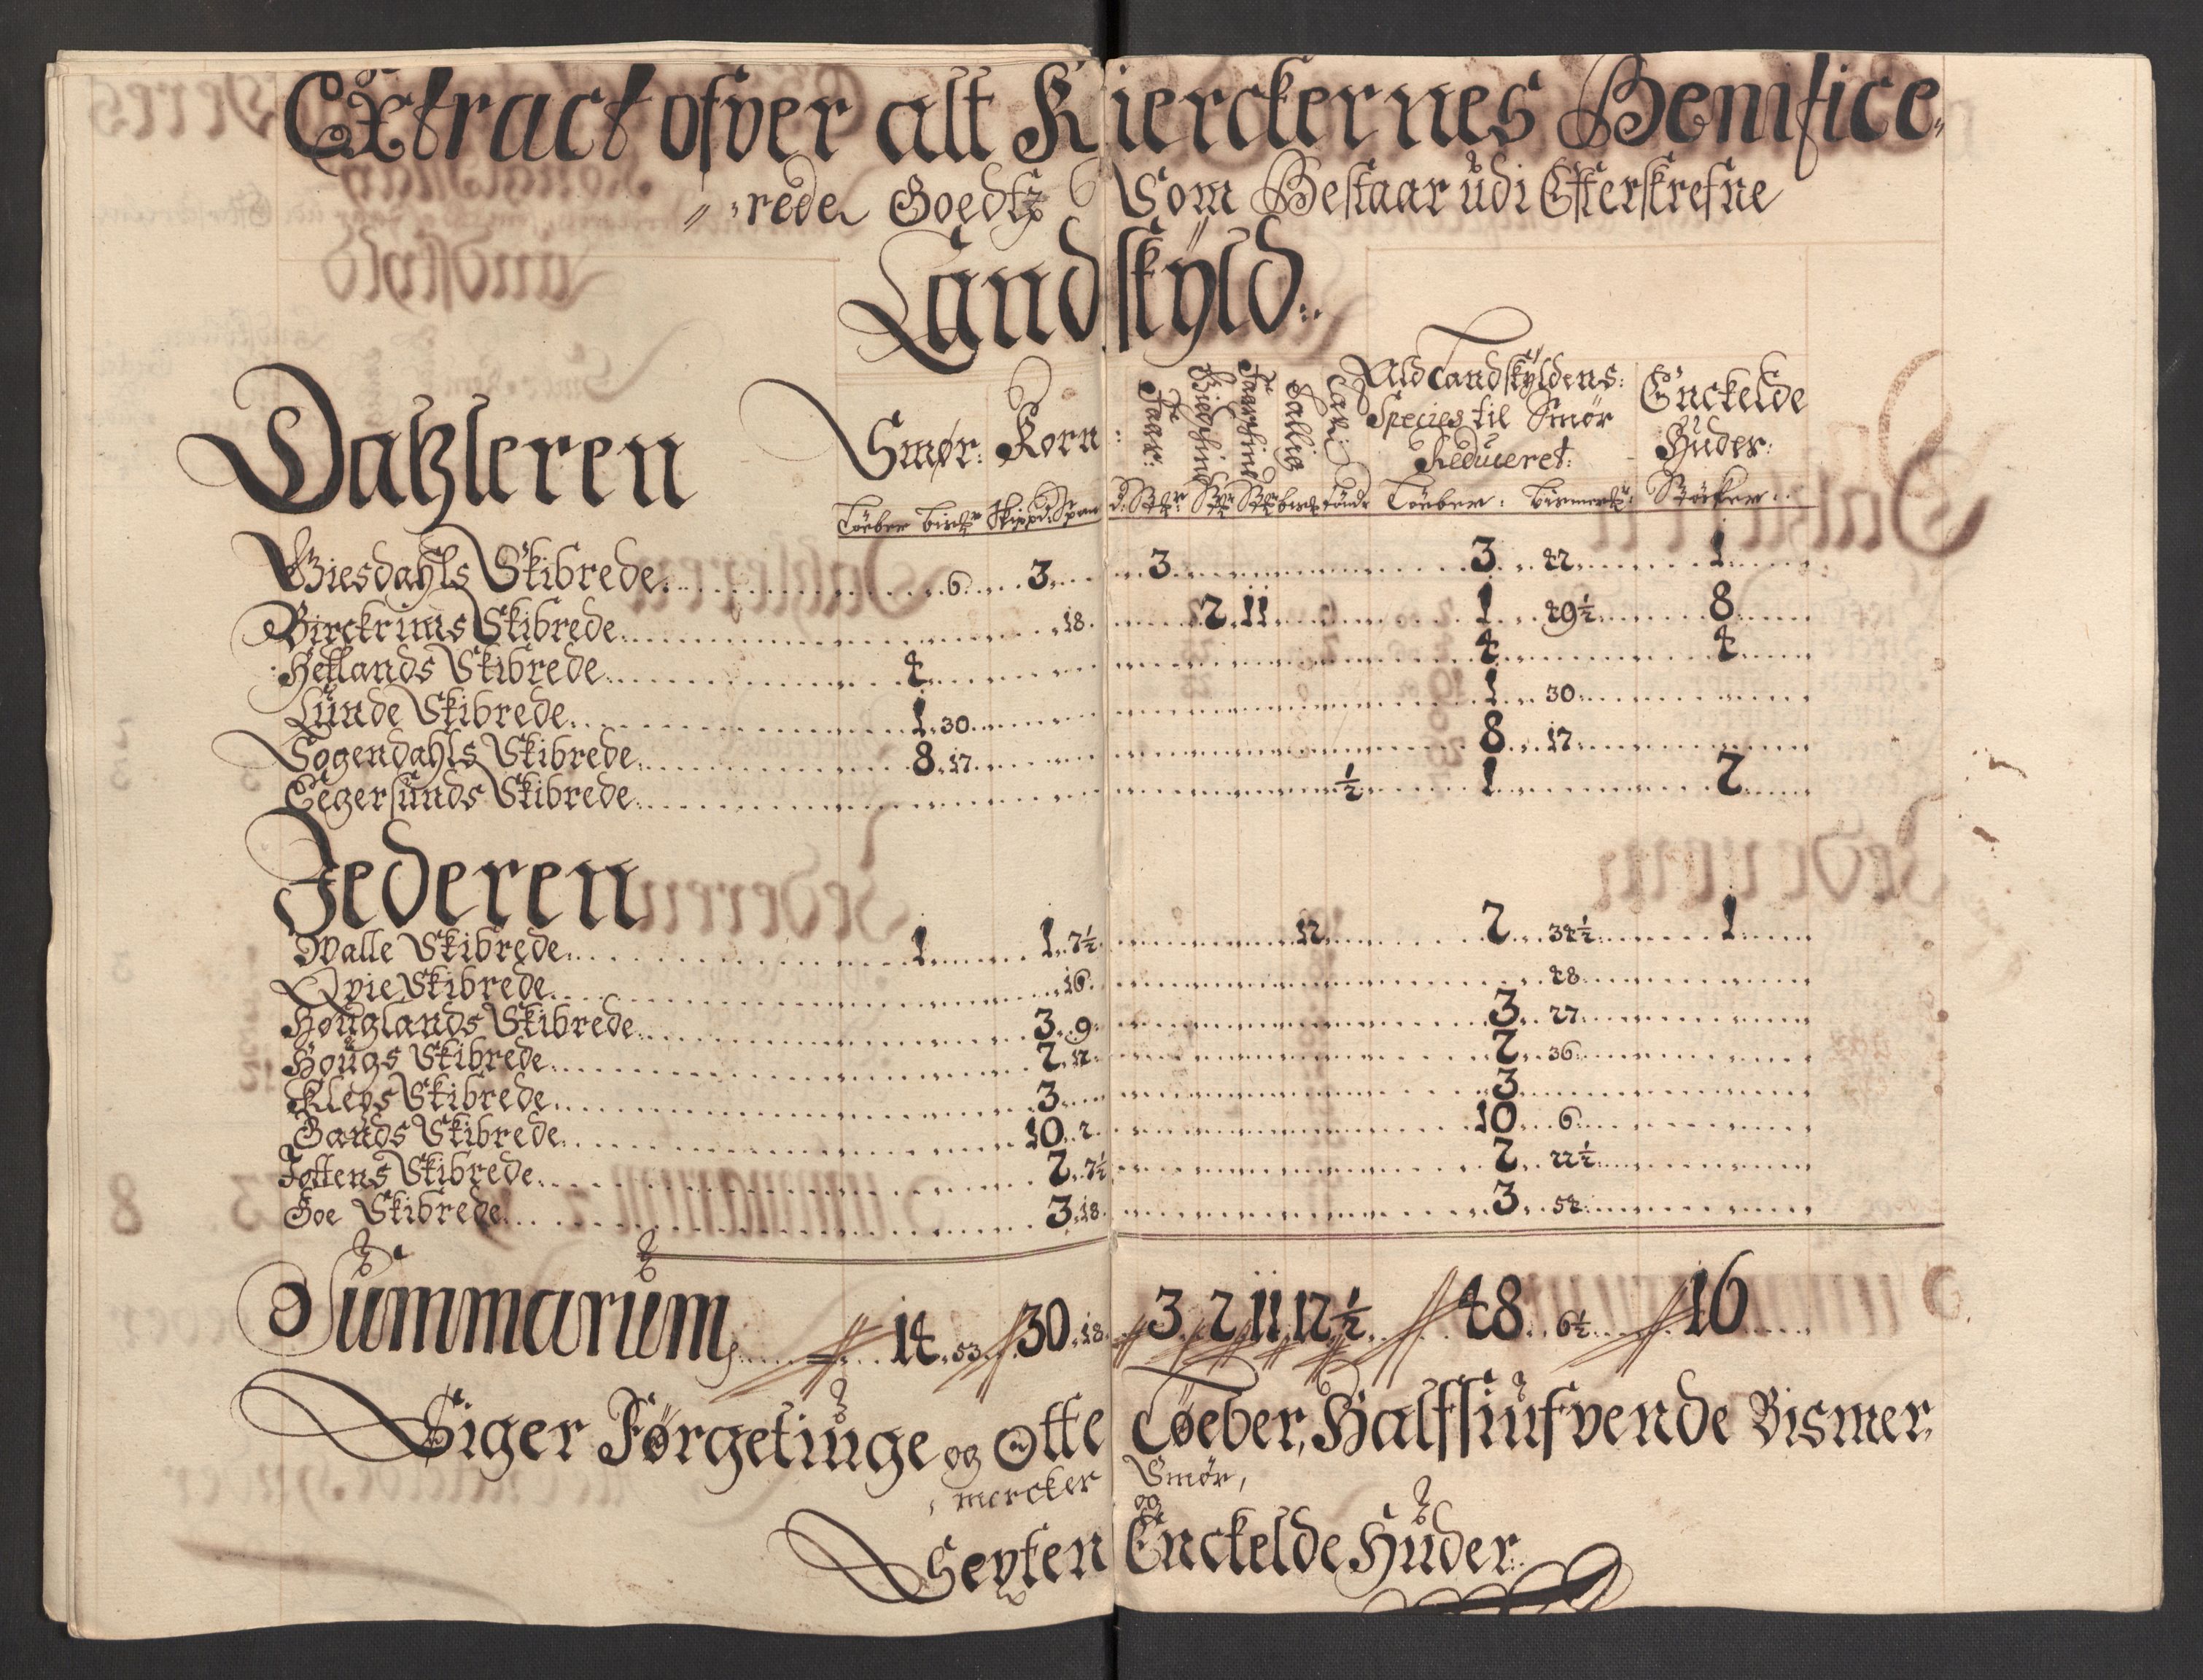 Extract ofver alt Kierckernes Benifice„
„rede Goedtz Som Bestaar udi Efterskrefne
Landskÿld:
Datzleren
Smør: Korn: Faar: Giedskind Faarskind Sallig Talg: Ald Landskÿldens: Species til Smør Reduceret: Enckelde Huder:
Løeber Bismr Skippd: Spand: Løeber: Bismerkr: Støcker:
Giesdahls Skibrede 6 3 3 3 42 1
Birckrims Skibrede 18 2 11 1 49½ 8
Hetlands Skibrede 4 4 4
Lunde Skibrede 1 30 1 30
Sogendahls Skibrede 8 17 8 17
Eegersunds Skibrede ½ 1 2
Jederen
Walle Skibrede 1 1 7½ 12 2 34½ 1
Qvie Skibrede 16 48
Høuglands Skibrede 3 9 3 27
Hougs Skibrede 2 12 2 36
Kleps Skibrede 3 3
Gands Skibrede 10 2 10 6
Jottens Skibrede 2 7½ 2 22½
Goe Skibrede 3 18 3 54
Summarum 14 53 30 18 3 2 11 12 ½ 48 6½ 16
Siger Førgetiuge og Otte Løeber, Halfsiufvende Bismer„
mercker Smør,
og
Seyten Enckelde Huder: